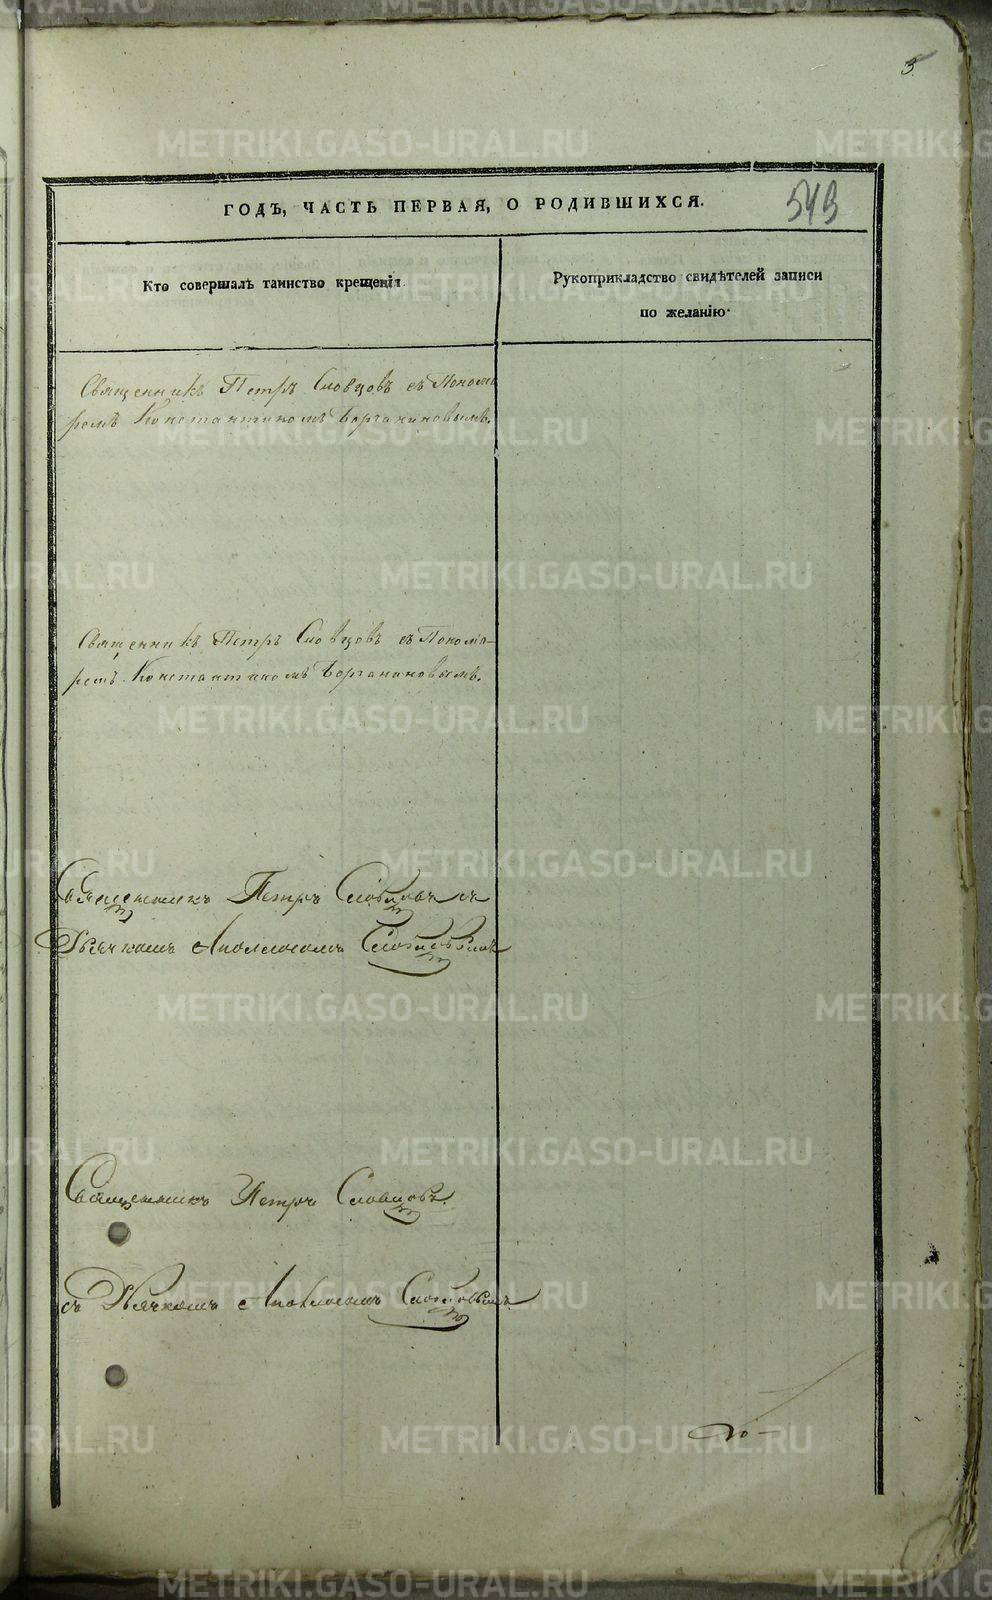 3.
ГОДЪ, ЧАСТЬ ПЕРВАЯ, О РОДИВШИХСЯ.
543
Кто совершалъ таинство крещенія.
Рукоприкладство свидѣтелей записи
по желанію.
Священникъ Петръ Словцовъ съ Понома
ремъ Константиномъ
Священникъ Петръ Словцовъ съ Понома-
ремъ Константиномъ
Священникъ Петръ Словцовъ съ
Дьячкомъ Аполлосомъ Словцовымъ
Священникъ Петръ Словцовъ
съ Дьячкомъ Аполлосомъ Словцовымъ
METRIKI.GASO-URAL.RU